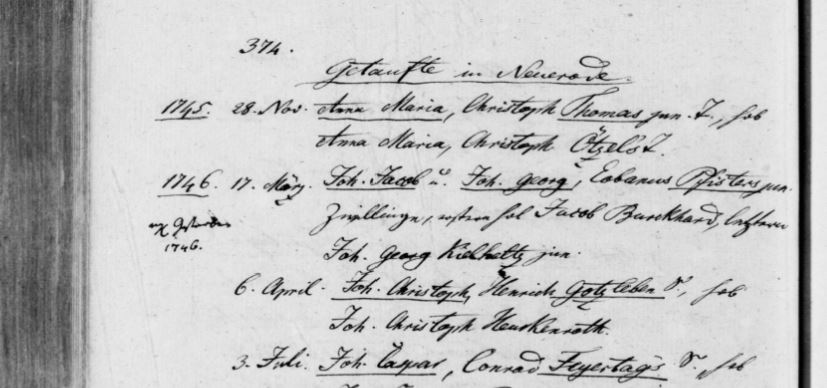 374.
Getaufte in Neuerode.
1745. 28. Nov. Anna Maria, Christoph Thomas jun. T., hob
Anna Maria, Christoph Ötzels T.
1746. 17. März. Joh. Jacob u. Joh. Georg, Eobanus Pfisters jun.
Zwillinge, erstern hob Jacob Burckhard, letztern
1746.
Joh. Georg Kielholtz jun.
6. April. Joh. Christoph, Henrich Gotzleben S., hob
Joh. Christoph Heuckenroth.
3. Juli. Joh. Caspar, Conrad Feyertag's S. hob